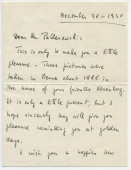 December 30 - 1930
Dear Mr. Paderewski:
This is only to make you a little
pleasure - These pictures were
taken in Berne about 1888 in
the house of your friends
It is only a little present but I
hope sincerely they will give you
pleasure reminding you at golden
days.
I wish you a happier new